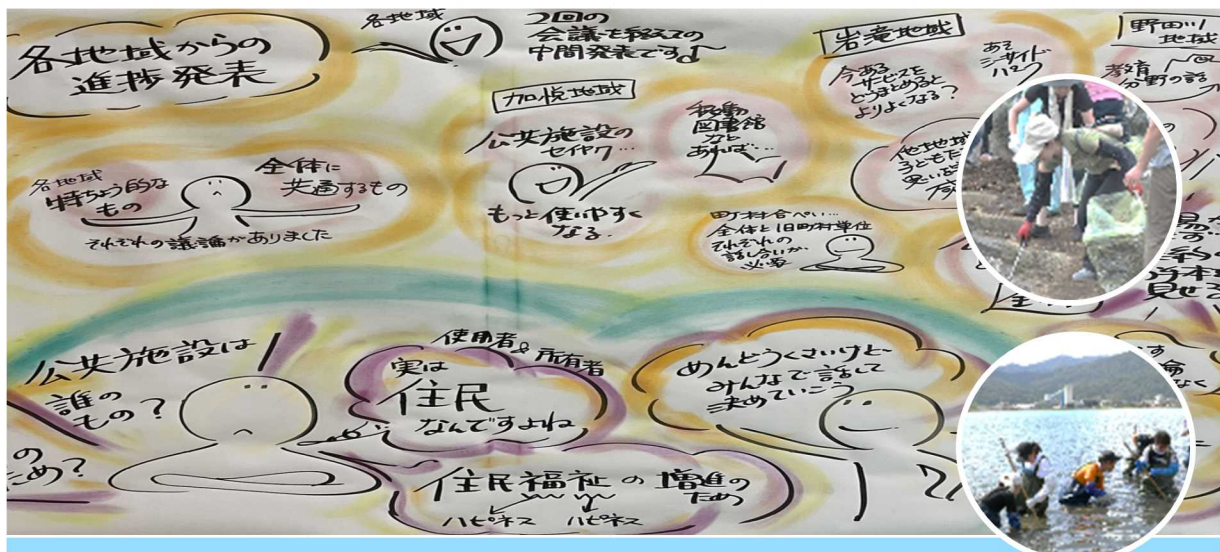 各地域からの
進捗発表
各地域
2回の
会議を終えての
中間発表です♪
各地域
特ちょう的な
もの
全体に
共通するもの
それぞれの議論がありました
加悦地域
公共施設の
セイヤク…
もっと使いやすく
なる.
移動
図書館
など
あれば…
町村合ぺい…
全体と旧町村単位
それぞれの
話し合いが
必要
岩滝地域
今ある
サービスを
どうまとめると
よりよくなる?
あそ
シーサイド
パーク
他地域
子どもた
思い
野田川
地域
教育
分野の話
見せる
公共施設は
誰の
もの?
ため?
使用者&所有者
実は
住民
なんですよね
住民福祉の増進の
ため
ハピネス ハピネス
めんどうくさいけど、
みんなで話して
決めていこう